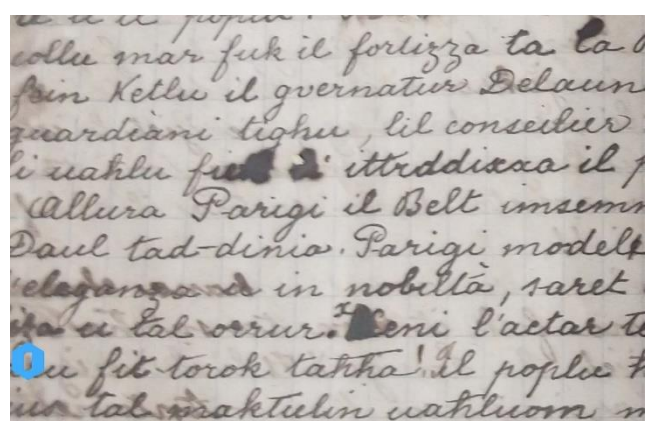 collu mar fuk il fortizza ta la
fein Ketlu il gvernatur Delaun
guardiani tighu, lil conseilier
li uahlu ittrddixxa il
Allura Parigi il Belt imsemm
Daul tad-dinia. Parigi modell
eleganza u in nobiltà, saret
u tal orrur. x Keni l'actar
u fit-torok tahha! il poplu
tal maktulin uahluom